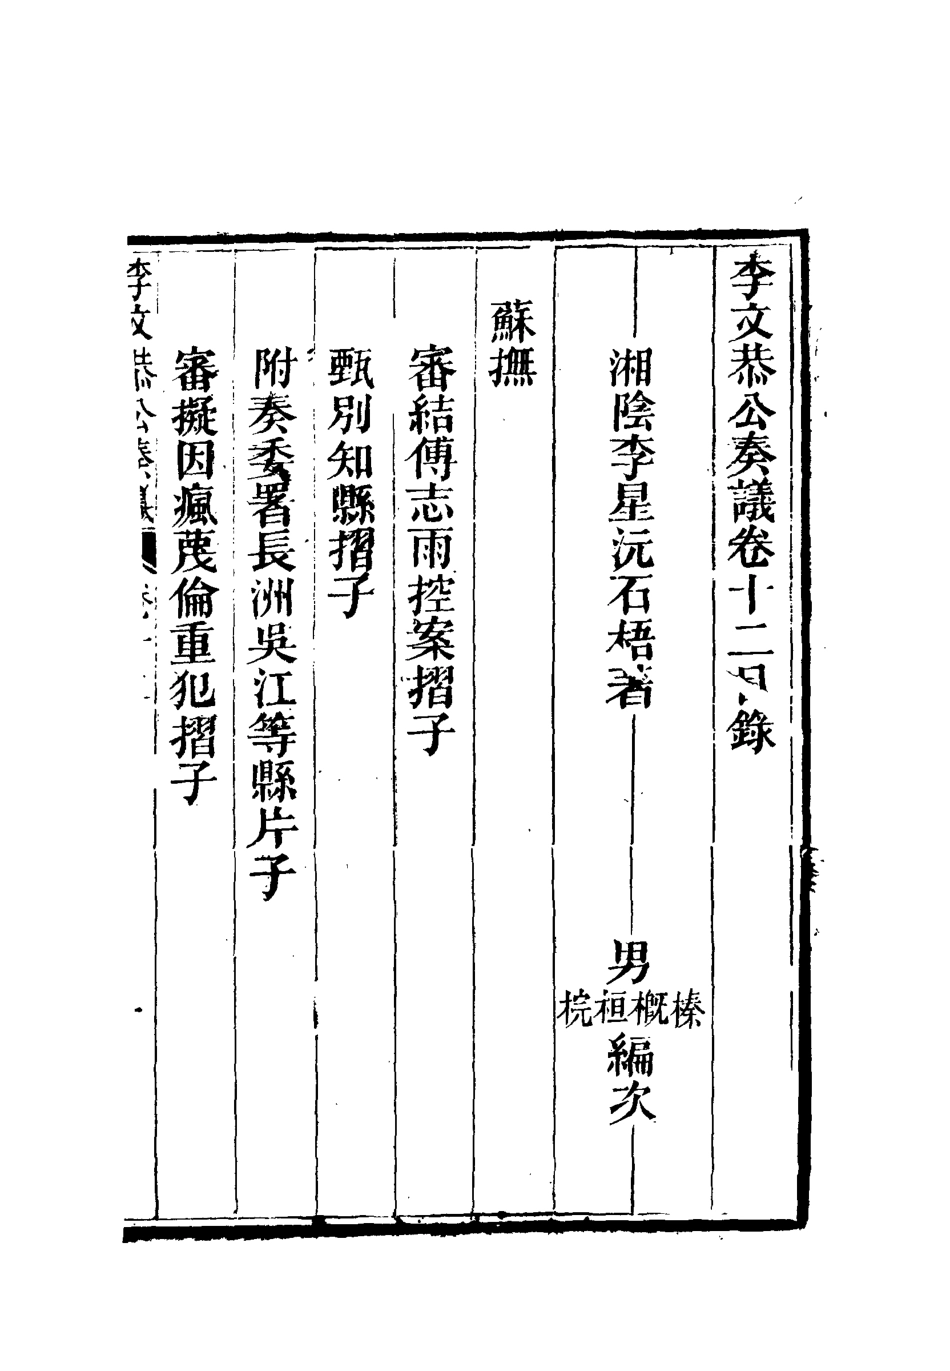 李文恭公奏議卷十二目錄
湘陰李星沅石梧著 男榛概桓梡編次
蘇撫
審結傅志雨控案摺子
甄別知縣摺子
附奏委署長洲吳江等縣片子
審擬因瘋蔑倫重犯摺子
李文恭公奏議 卷十二